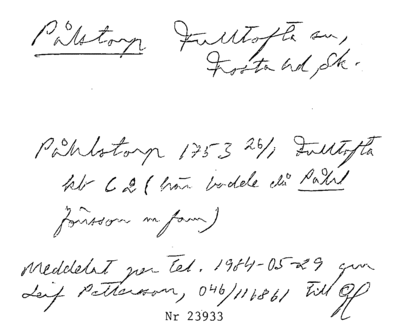 Pålstorp Fulltofta sn,
Frosta hd, Sk.
Påhlstorp 1753 26/1 Fulltofta
kb C2 (här bodde då Påhl
Jönsson m fam)
Meddelat per tel. 1984-05-29 av
Leif Pettersson, 046/116861 till
Nr 23933